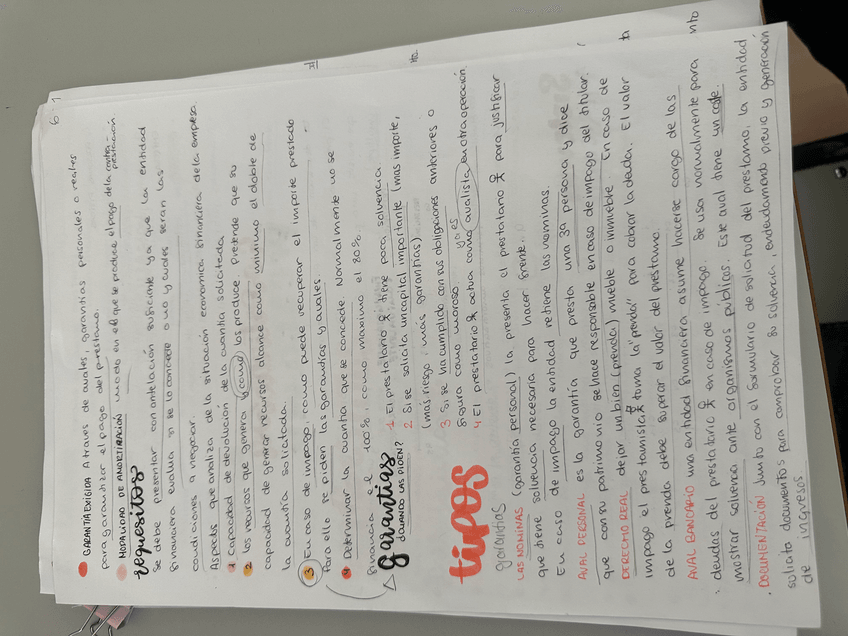 6.1
GARANTIA EXIGIDA A traves de avales, garantias personales o reales
para garantizar el pago del prestamo.
MODALIDAD DE AMORTIZACIÓN modo en el que se produce el pago de la contra-
prestación
requesitos
Se debe presentar con antelación suficiente ya que la entidad
financiera evalua si se lo concede o no y cuales seran las
condiciones a negociar
Aspectos que analiza de la situación economica financiera de la empresa
1 Capacidad de devolución de la cuantia solicitada
2 los recursos que genera y como los produce Pretende que su
capacidad de generar recursos alcance como minimo el doble de
la cuantia solicitada
3 En caso de impago, como puede recuperar el importe prestado
Para ello se piden las garantias y avales.
4 Determinar la cuantia que se concede Normalmente no se
financia el 100%, como maximo el 80%.
garantias
¿CUANDO LAS PIDEN?
1 El prestatario tiene poca solvencia.
2 Si se solicita un capital importante (mas importe,
(mas riesgo, mas garantias)
3 Si se ha cumplido con sus obligaciones anteriores o
figura como moroso
ya es
4 El prestatario actua como avalista en otra operación.
tipos
garantias
LAS NOMINAS (garantia personal) la presenta el prestatario para justificar
que tiene solvencia necesaria para hacer frente.
En caso de impago la entidad retiene las nominas.
AVAL PERSONAL es la garantia que presta una 3ª persona y dice
que con su patrimonio se hace responsable en caso de impago del titular.
DERECHO REAL dejar un bien (prenda) mueble o inmueble. En caso de
impago el prestamista toma la "prenda" para cobrar la deda. El valor
de la prenda debe superar el valor del prestamo.
AVAL BANCARIO una entidad financiera asume hacerse cargo de las
deudas del prestatario en caso de impago. Se usa normalmente para
mostrar solvencia ante organismos publicos. Este aval tiene un coste.
DOCUMENTACIÓN Junto con el formulario de solicitud del prestamo, la entidad
solicita documentos para comprobar su solvencia, endeudamiento previo y generación
de ingresos.
nto